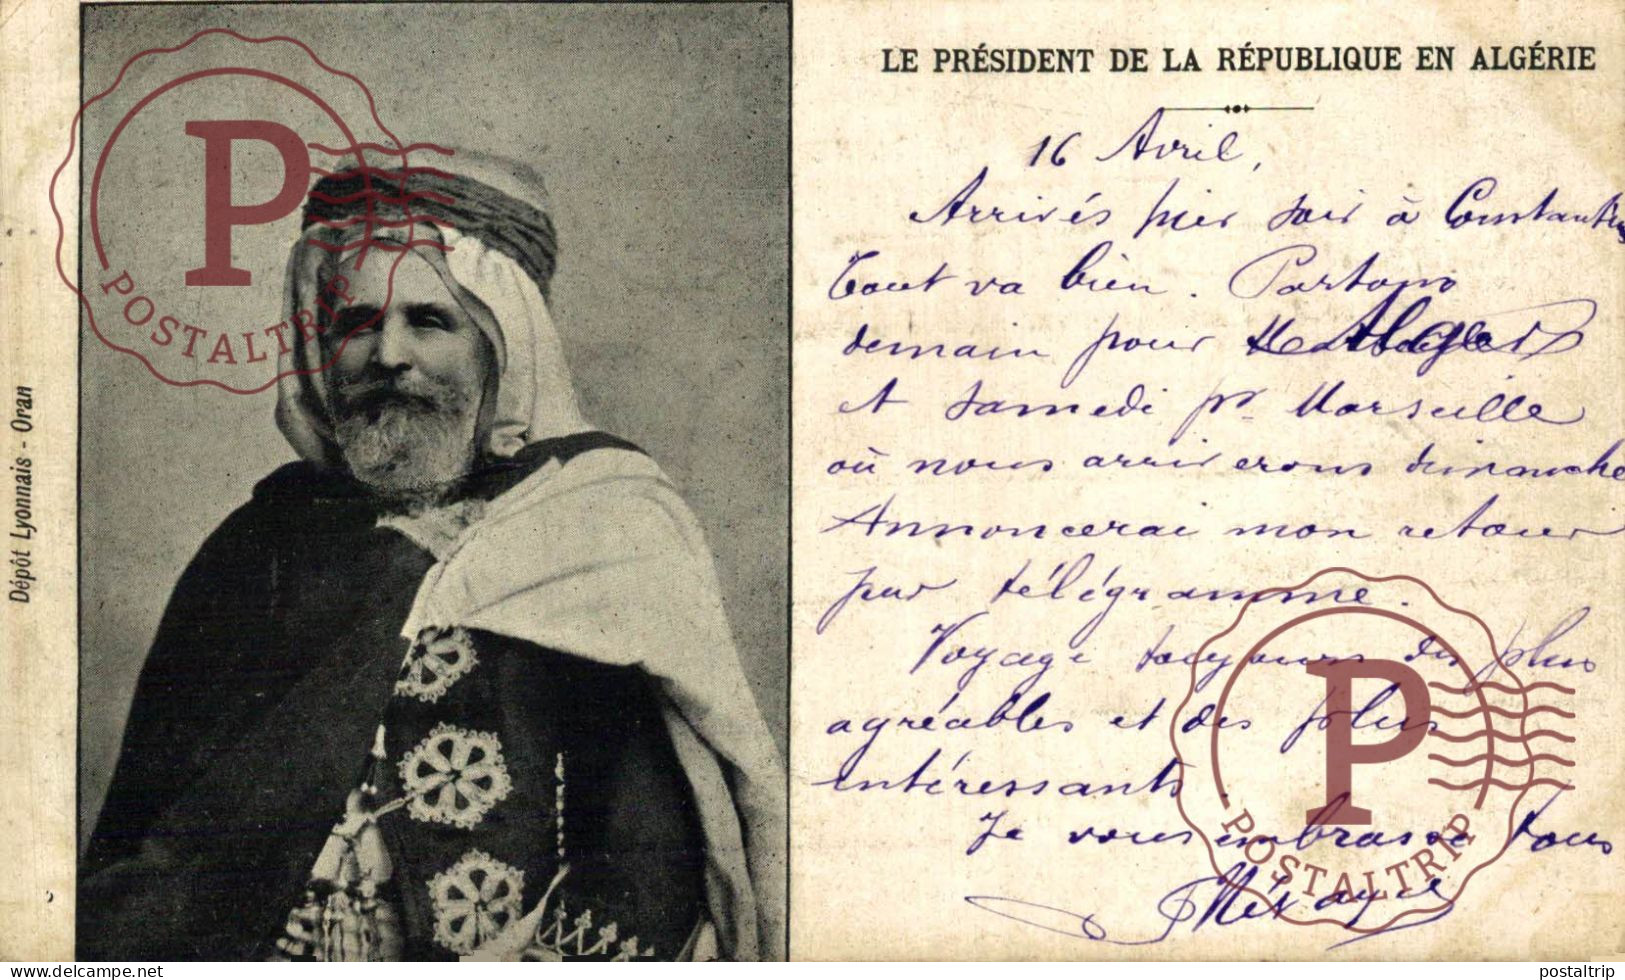 LE PRÉSIDENT DE LA RÉPUBLIQUE EN ALGÉRIE
16 Avril,
Arrivés hier soir à Constantine
Tout va bien. Partons
demain pour Alger
et samedi pr Marseille
où nous arriverons dimanche
Annoncerai mon retour
par télégramme.
Voyage toujours des plus
agréables et des plus
intéressants.
Je vous embrasse tous
Dépôt Lyonnais - Oran
P
POSTALTRIP
P
POSTALTRIP
www.delcampe.net
postaltrip